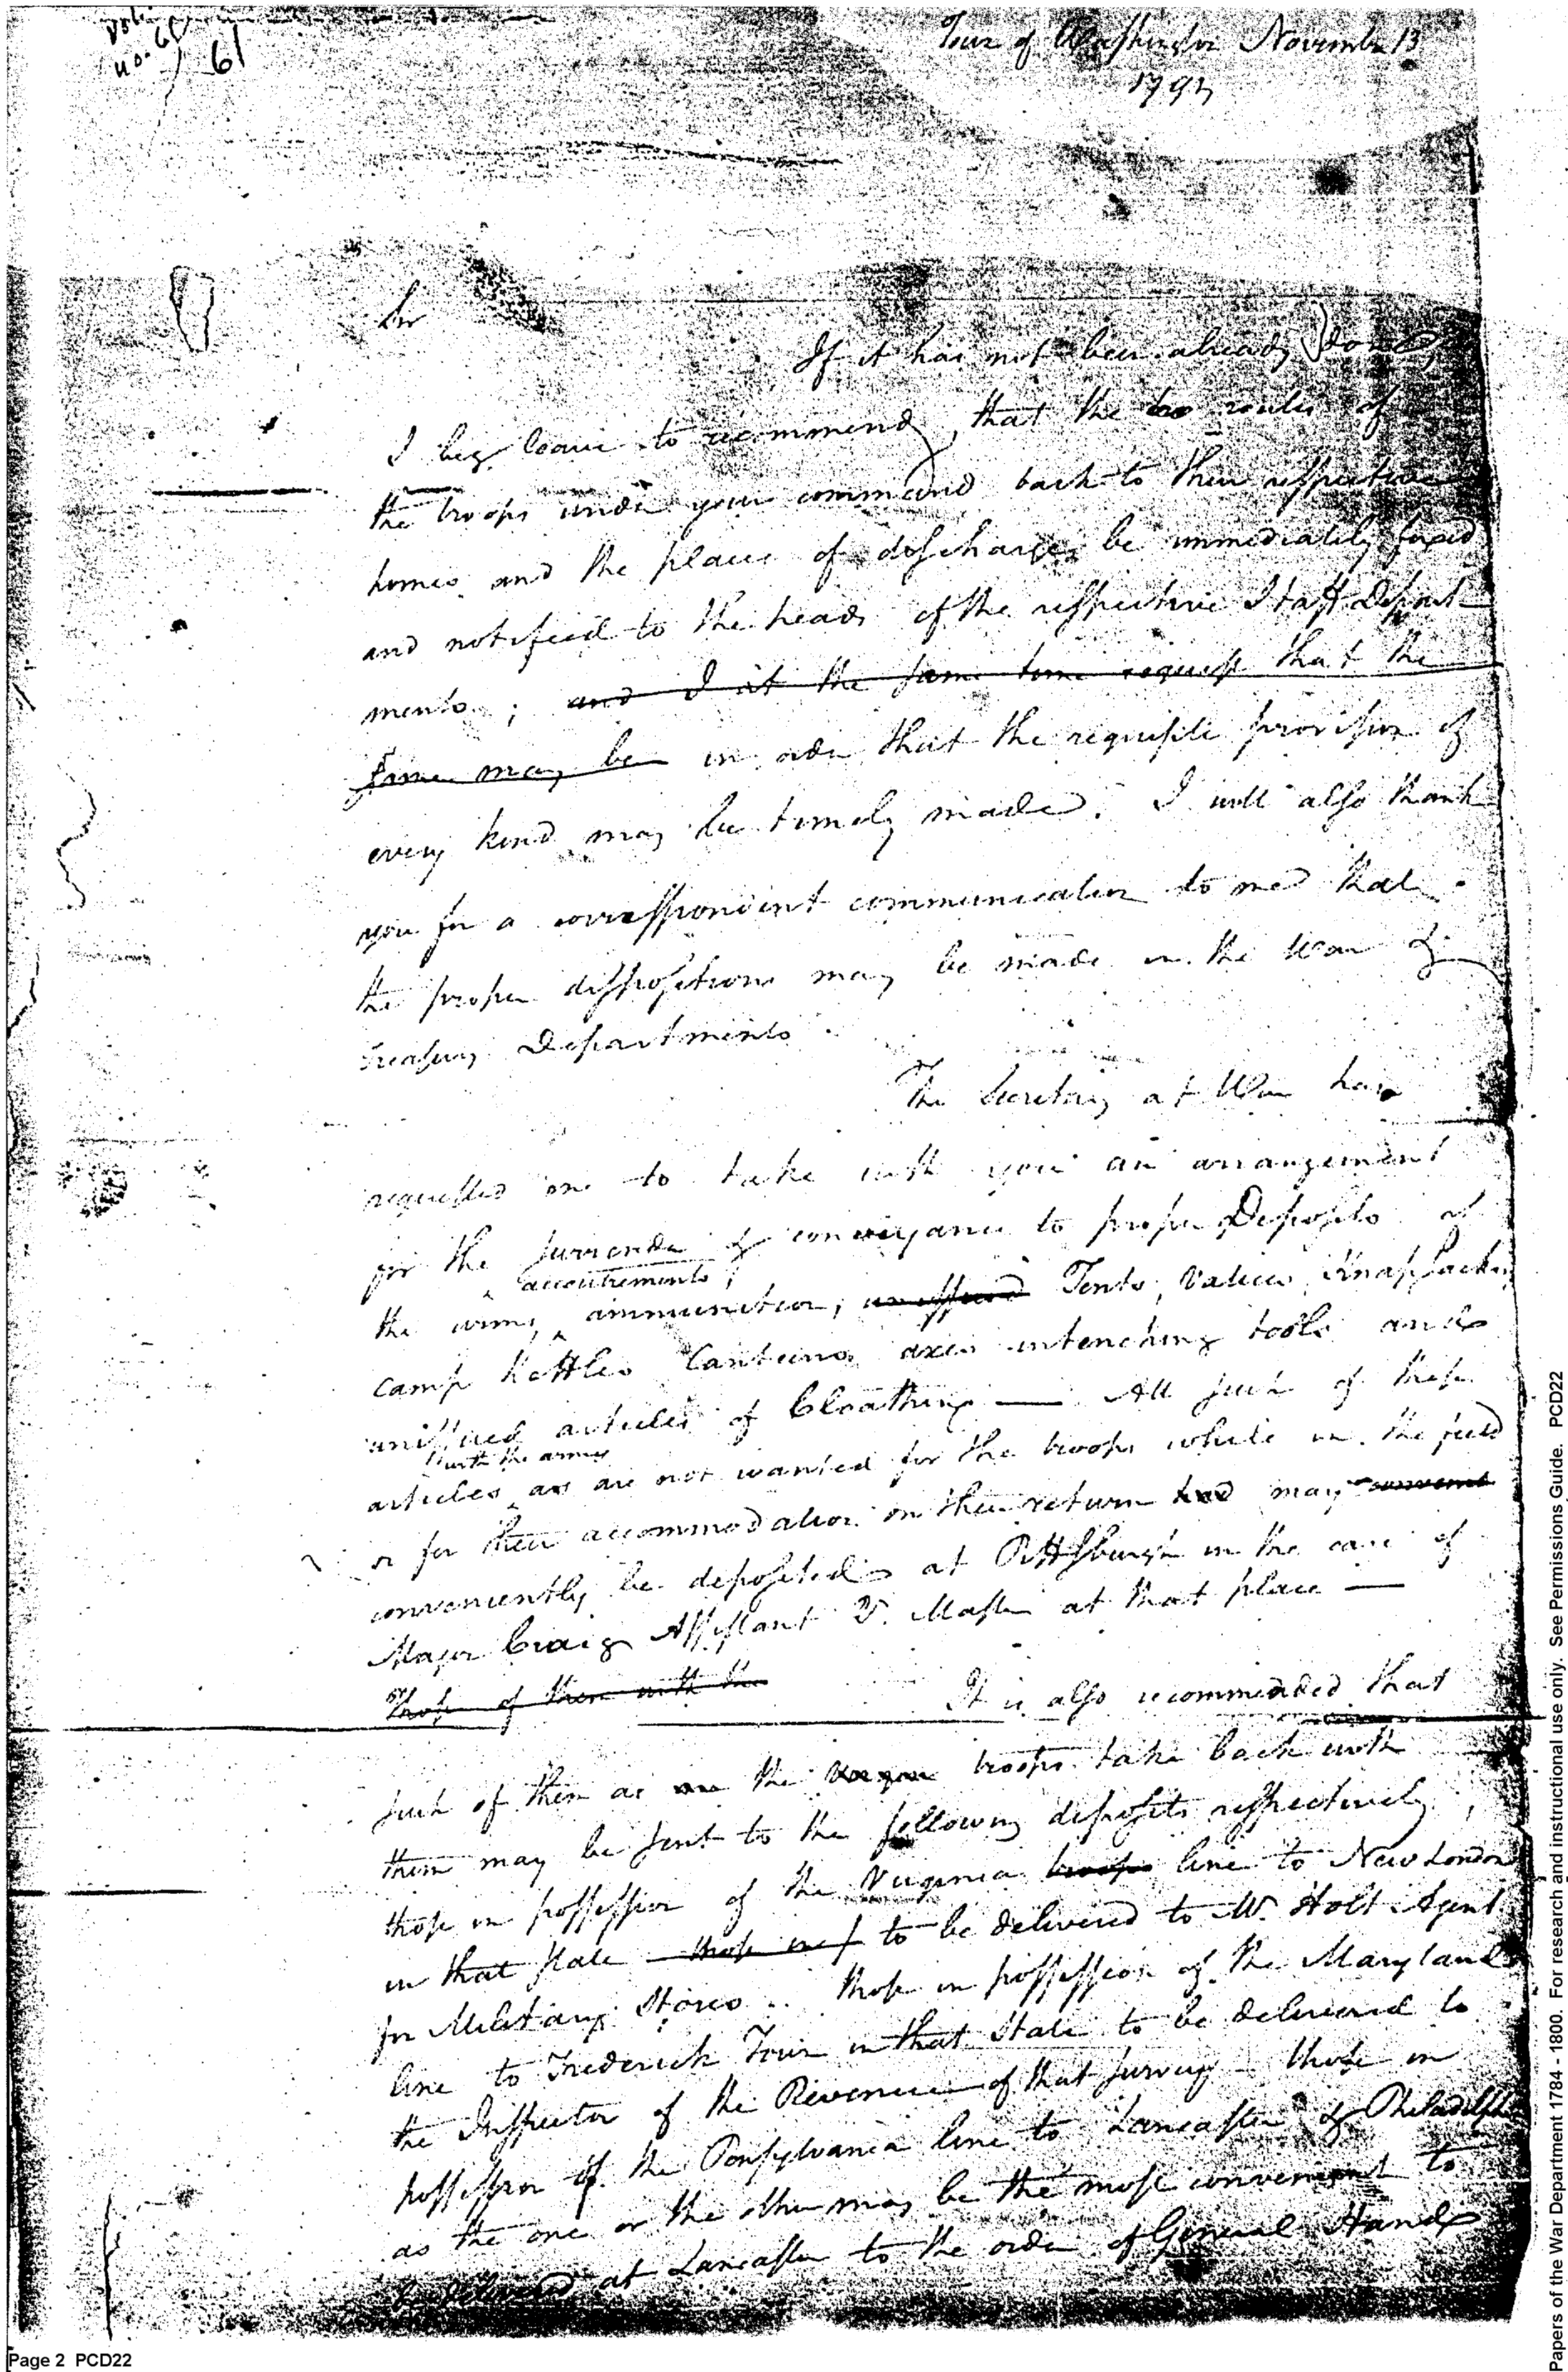 no. 61
61
Town of Washington November 13
1794
Sir
If it has not been already done,
I beg leave to recommend, that the routes of
the troops under your command back to their respective
homes and the places of discharge be immediately fixed
and notified to the heads of the respective Staff Depart
ments; and I at the same time request that the
same may be in order that the requisite provision of
every kind may be timely made. I will also thank
you for a correspondent communication to me that
the proper dispositions may be made in the War &
Treasury Departments
The Secretary at War has
requested me to take with you an arrangement
for the surrender & conveyance to proper Deposits of
accoutrements,
the arms, ammunition, unissued Tents, Valices, Knapsacks
camp kettles Canteens axes intenching tools and
unissued articles of Cloathing — All such of these
with the army
articles as are not wanted for the troops while in the field
or for their accommodation on their return may convenient
conveniently be deposited at Pittsburgh in the care of
Major Craig Assistant Q. Master at that place —
Those of them with the
It is also recommended that
such of them as the troops take back with
them may be sent to the following deposits respectively,
those in possession of the Virginia troops line to New London
in that state those in p to be delivered to Mr. Holt Agent
for Military Stores. those in possession of the Maryland
line to Frederick Town in that State to be delivered to
the Inspector of the Revenue of that survey — those in
possession of the Pensylvania line to Lancaster & Philadelphia
as the one or the other may be the most convenient to
be delivered at Lancaster to the order of General Hand
Page 2 PCD22
Papers of the War Department 1784 - 1800. For research and instructional use only. See Permissions Guide. PCD22